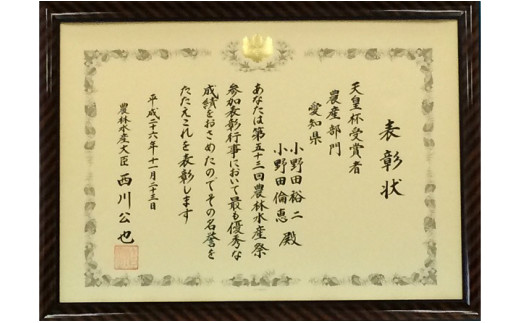 表彰状
天皇杯受賞者
農産部門
愛知県
小野田裕二
小野田倫恵
殿
あなたは第五十三回農林水産祭
参加表彰行事において最も優秀な
成績をおさめたのでその名誉を
たたえこれを表彰します
平成二十六年十一月二十三日
農林水産大臣 西川公也